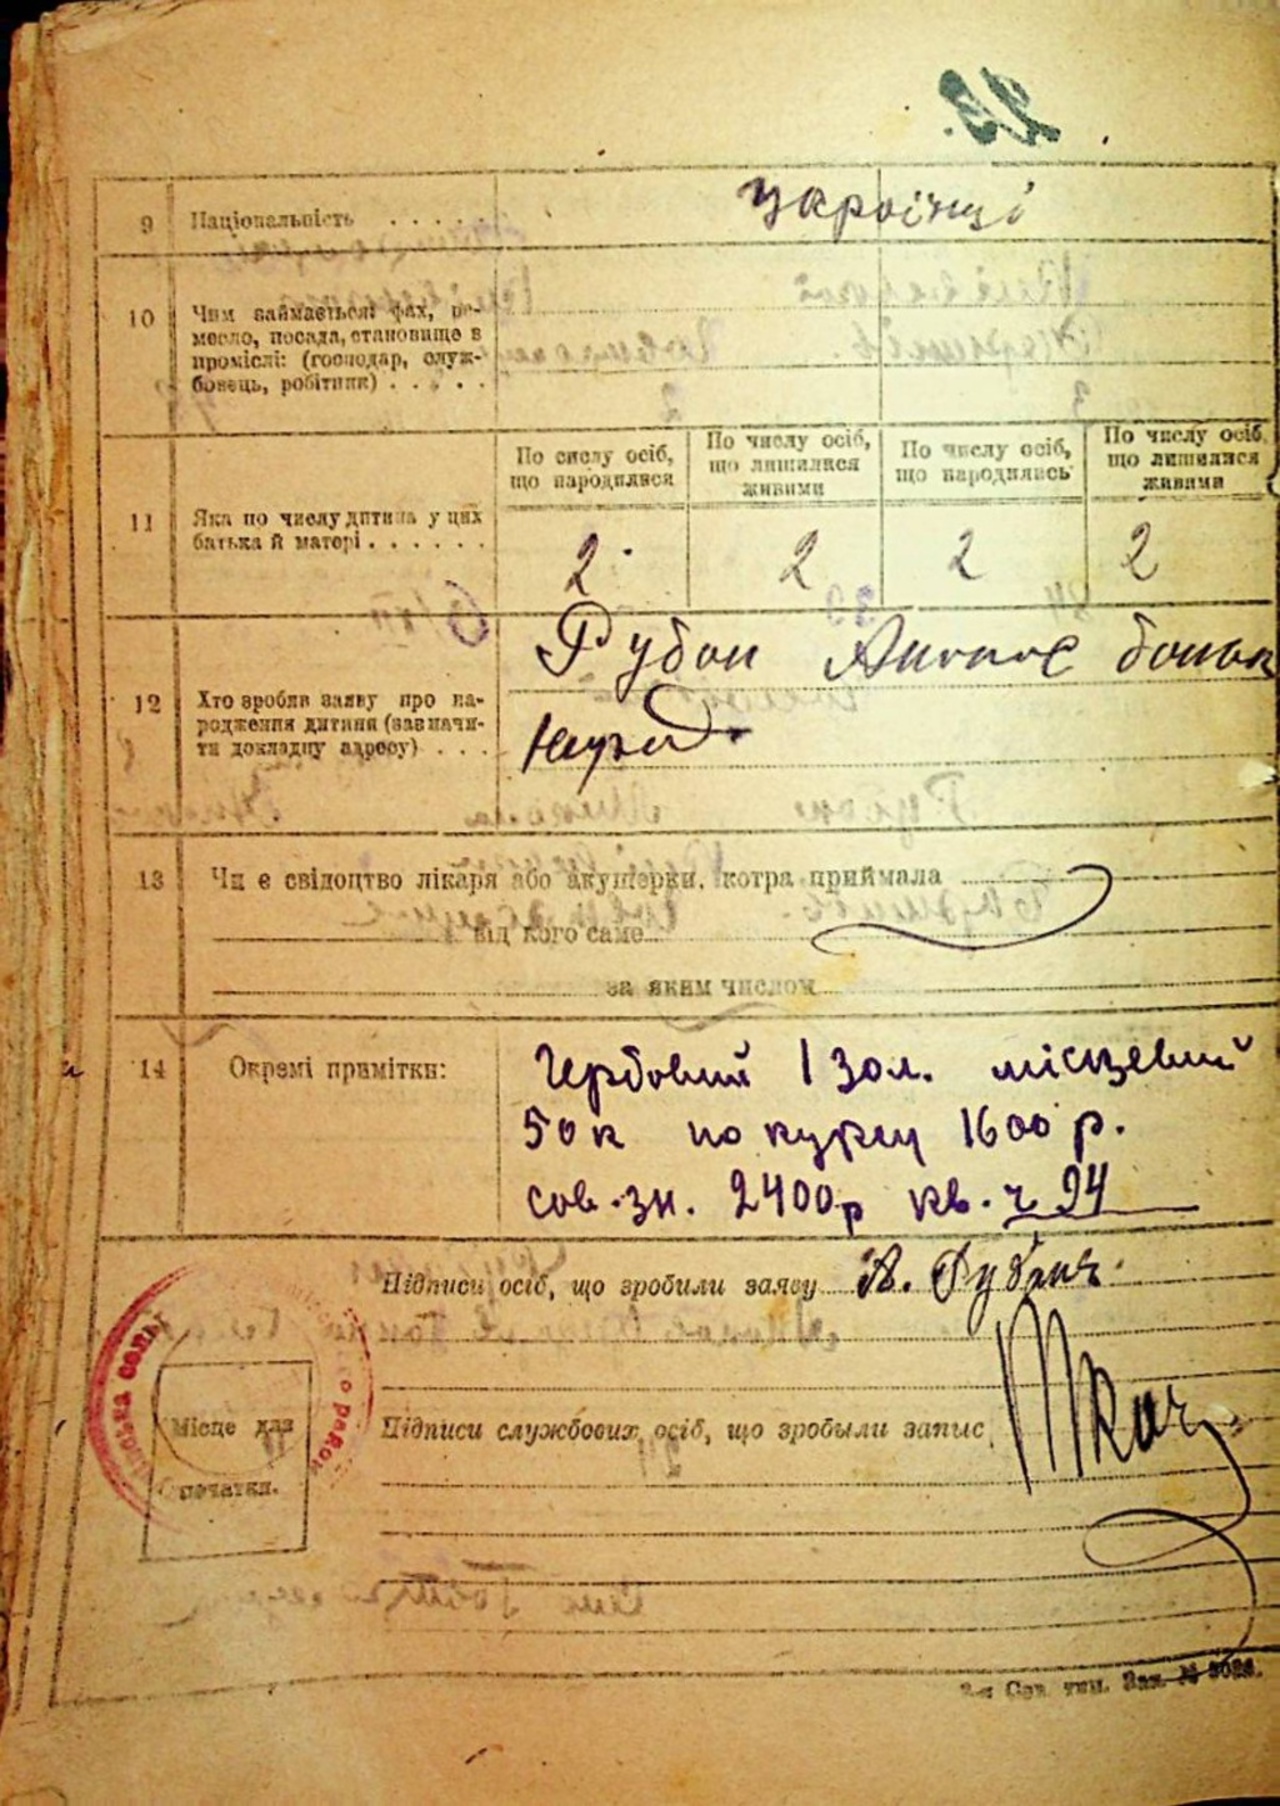 23.
9 Національність . . . .
українці
10 Чим займається: фах, ре-
месло, посада, становище в
проміслі: (господар, служ-
бовець, робітник) . . . . .
По числу осіб,
що народилися
По числу осіб,
що лишилися
живими
По числу осіб,
що народились
По числу осіб,
що лишилися
живими
11 Яка по числу дитина у цих
батька й матері . . . . . .
2 2 2 2
12 Хто зробив заяву про на-
родження дитини (зазначи-
ти докладну адресу) . . .
Рубан
13 Чи є свідоцтво лікаря або акушерки, котра приймала
від кого саме
за яким числом
14 Окремі примітки:
Гербовий 1 зол. місцевий
50 к по курсу 1600 р.
сов. зн. 2400 р кв. ч 24
Підписи осіб, що зробили заяву А. Рубан
Підписи службових осіб, що зробыли запис Ткач
Місце для
печатки.
району
2-я Сов. тип. Зак. №